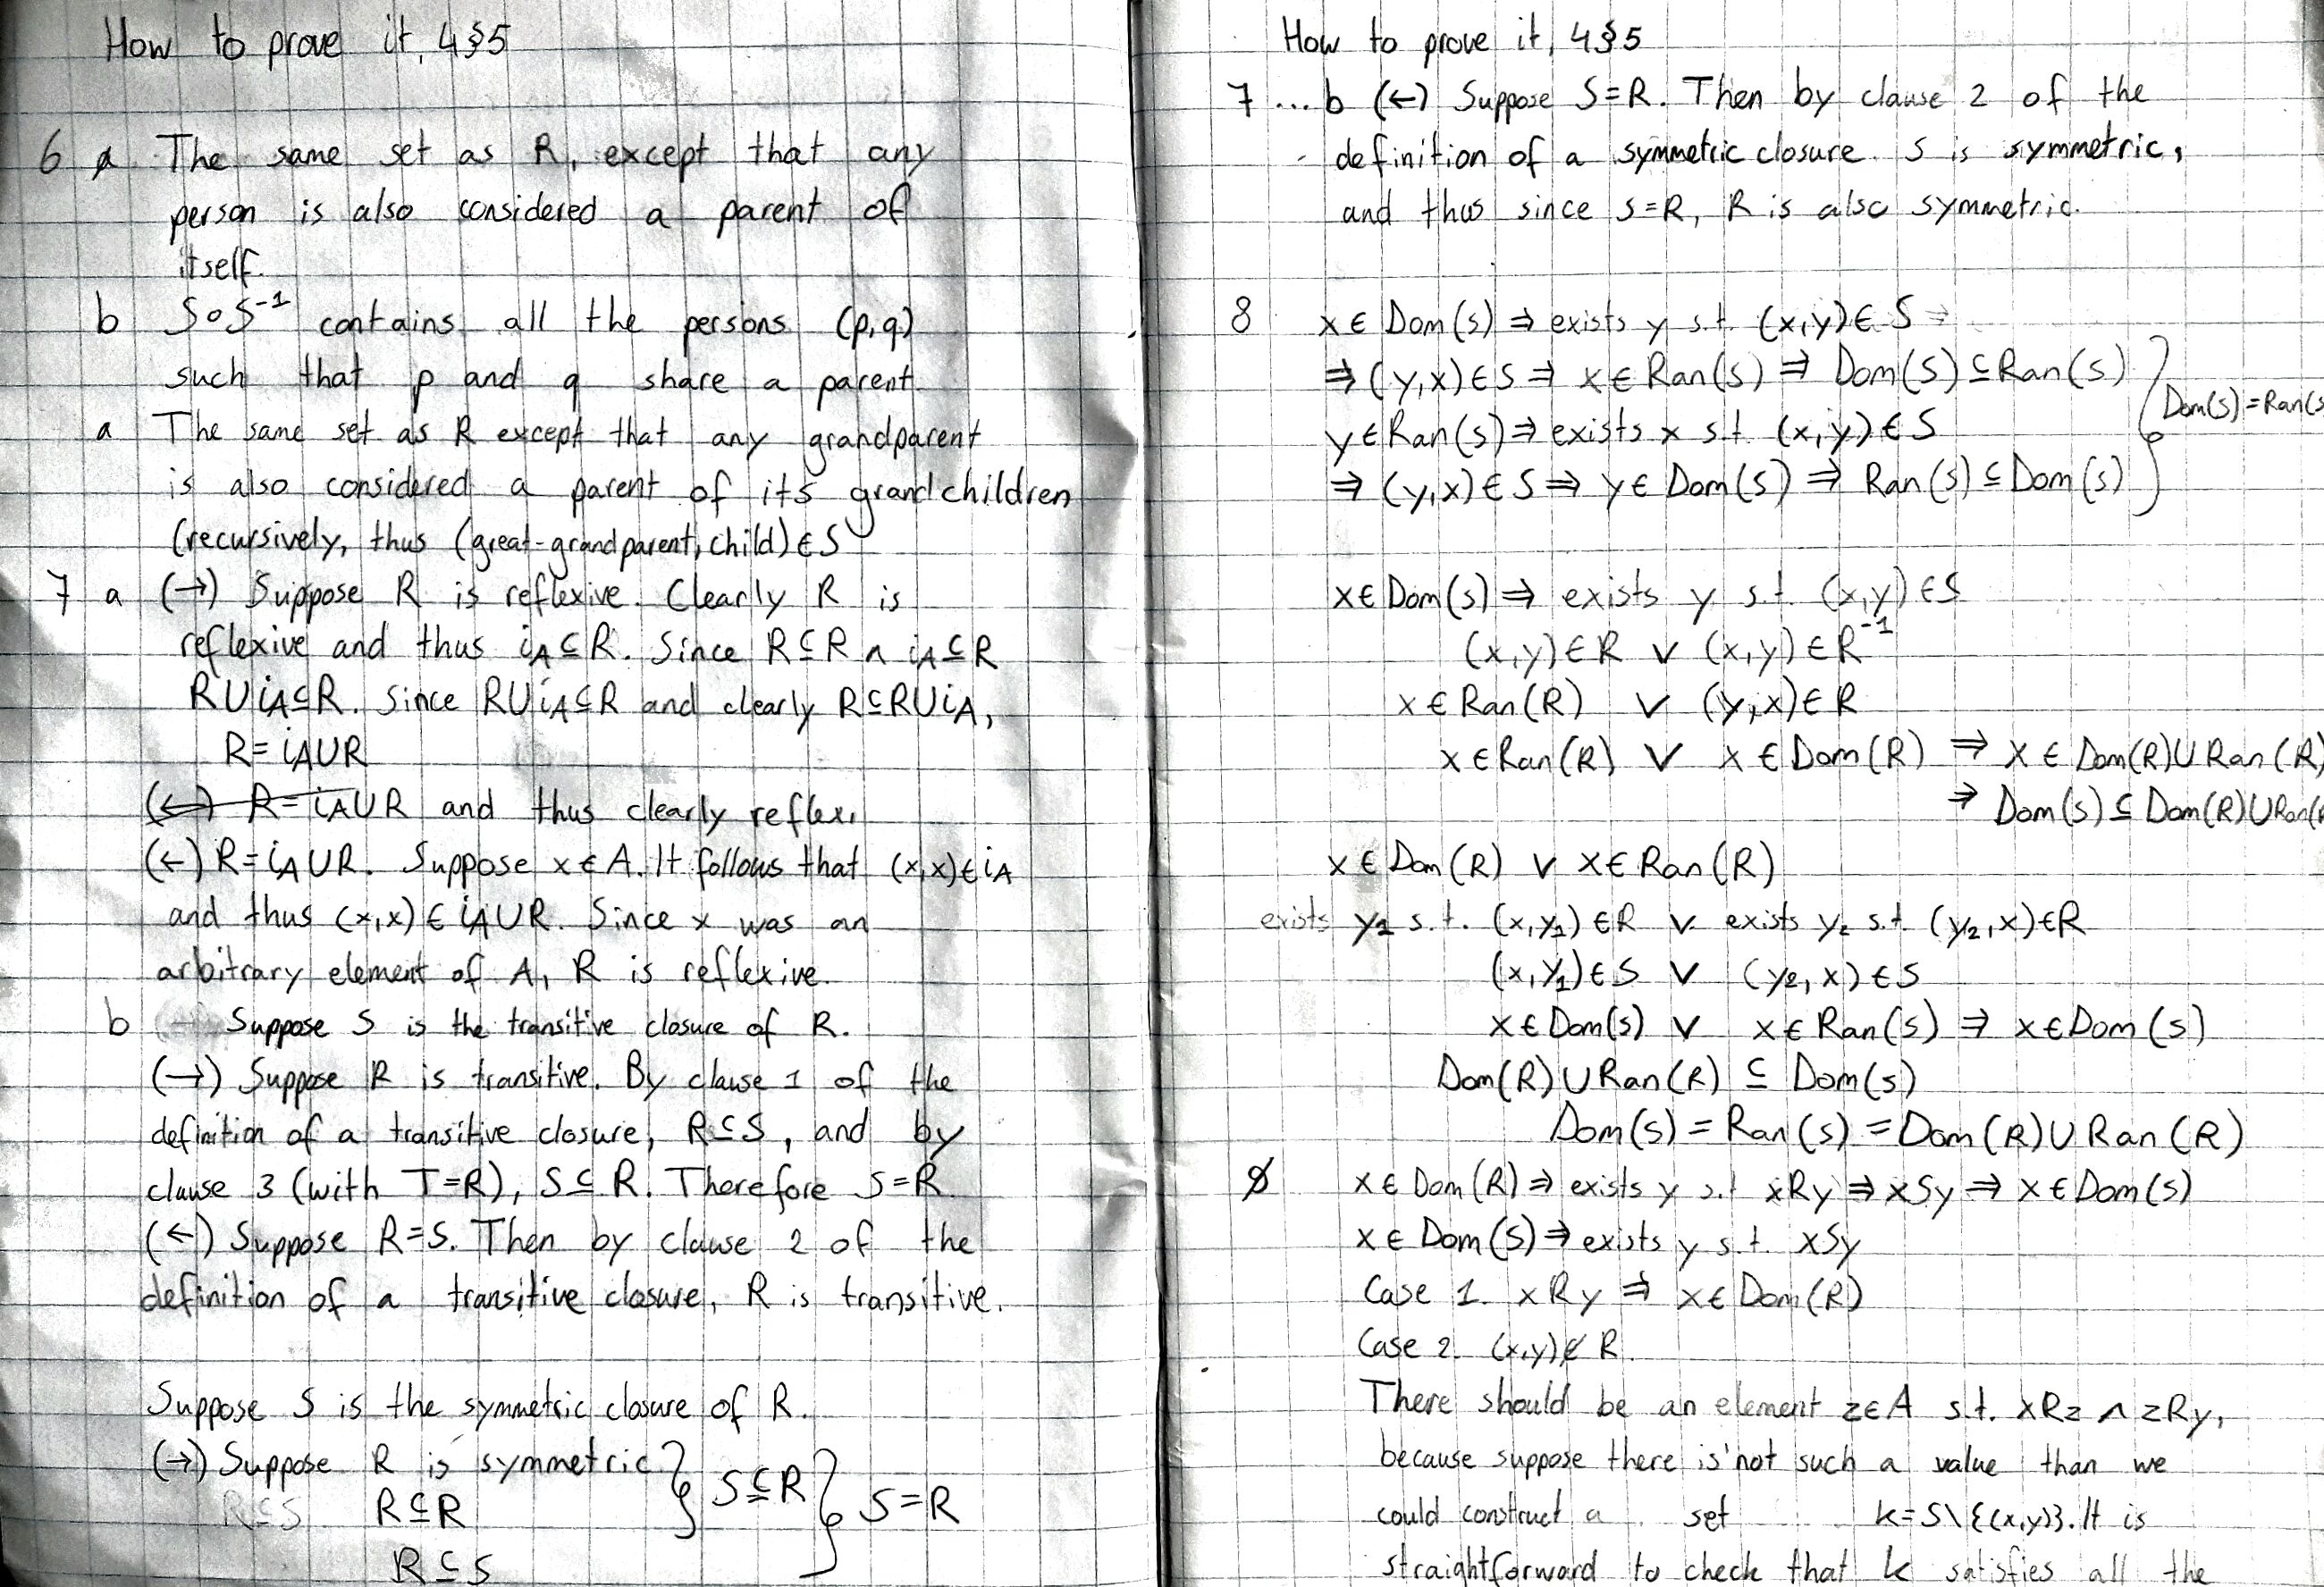 How to prove it, 4§5
6 a The same set as R, except that any
person is also considered a parent of
itself.
b S∘S⁻¹ contains all the persons (p,q)
such that p and q share a parent.
a The same set as R except that any grandparent
is also considered a parent of its grandchildren
(recursively, thus (great-grandparent, child) ∈ S
7 a (→) Suppose R is reflexive. Clearly R is
reflexive and thus i_A ⊆ R. Since R ⊆ R ∧ i_A ⊆ R
R ∪ i_A ⊆ R. Since R ∪ i_A ⊆ R and clearly R ⊆ R ∪ i_A,
R = i_A ∪ R
(←) R = i_A ∪ R and thus clearly reflexi
(←) R = i_A ∪ R. Suppose x ∈ A. It follows that (x,x) ∈ i_A
and thus (x,x) ∈ i_A ∪ R. Since x was an
arbitrary element of A, R is reflexive.
b Suppose S is the transitive closure of R.
(→) Suppose R is transitive. By clause 1 of the
definition of a transitive closure, R ⊆ S, and by
clause 3 (with T=R), S ⊆ R. Therefore S=R.
(←) Suppose R=S. Then by clause 2 of the
definition of a transitive closure, R is transitive.
Suppose S is the symmetric closure of R.
(→) Suppose R is symmetric } S ⊆ R } S=R
R ⊆ S R ⊆ R
R ⊆ S
How to prove it, 4§5
7 ...b (←) Suppose S=R. Then by clause 2 of the
definition of a symmetric closure. S is symmetric,
and thus since S=R, R is also symmetric.
8 x ∈ Dom(S) ⇒ exists y s.t. (x,y) ∈ S ⇒
⇒ (y,x) ∈ S ⇒ x ∈ Ran(S) ⇒ Dom(S) ⊆ Ran(S)
} Dom(S)=Ran(S
y ∈ Ran(S) ⇒ exists x s.t. (x,y) ∈ S
⇒ (y,x) ∈ S ⇒ y ∈ Dom(S) ⇒ Ran(S) ⊆ Dom(S)
x ∈ Dom(S) ⇒ exists y s.t. (x,y) ∈ S
(x,y) ∈ R ∨ (x,y) ∈ R⁻¹
x ∈ Ran(R) ∨ (y,x) ∈ R
x ∈ Ran(R) ∨ x ∈ Dom(R) ⇒ x ∈ Dom(R) ∪ Ran(R)
⇒ Dom(S) ⊆ Dom(R) ∪ Ran(R
x ∈ Dom(R) ∨ x ∈ Ran(R)
exists y₁ s.t. (x,y₁) ∈ R ∨ exists y₂ s.t. (y₂,x) ∈ R
(x,y₁) ∈ S ∨ (y₂,x) ∈ S
x ∈ Dom(S) ∨ x ∈ Ran(S) ⇒ x ∈ Dom(S)
Dom(R) ∪ Ran(R) ⊆ Dom(S)
Dom(S) = Ran(S) = Dom(R) ∪ Ran(R)
x ∈ Dom(R) ⇒ exists y s.t xRy ⇒ xSy ⇒ x ∈ Dom(S)
x ∈ Dom(S) ⇒ exists y s.t. xSy
Case 1. xRy ⇒ x ∈ Dom(R)
Case 2. (x,y) ∉ R.
There should be an element z ∈ A s.t. xRz ∧ zRy,
because suppose there is'not such a value than we
could construct a set k=S\{(x,y)}. It is
straightforward to check that k satisfies all the